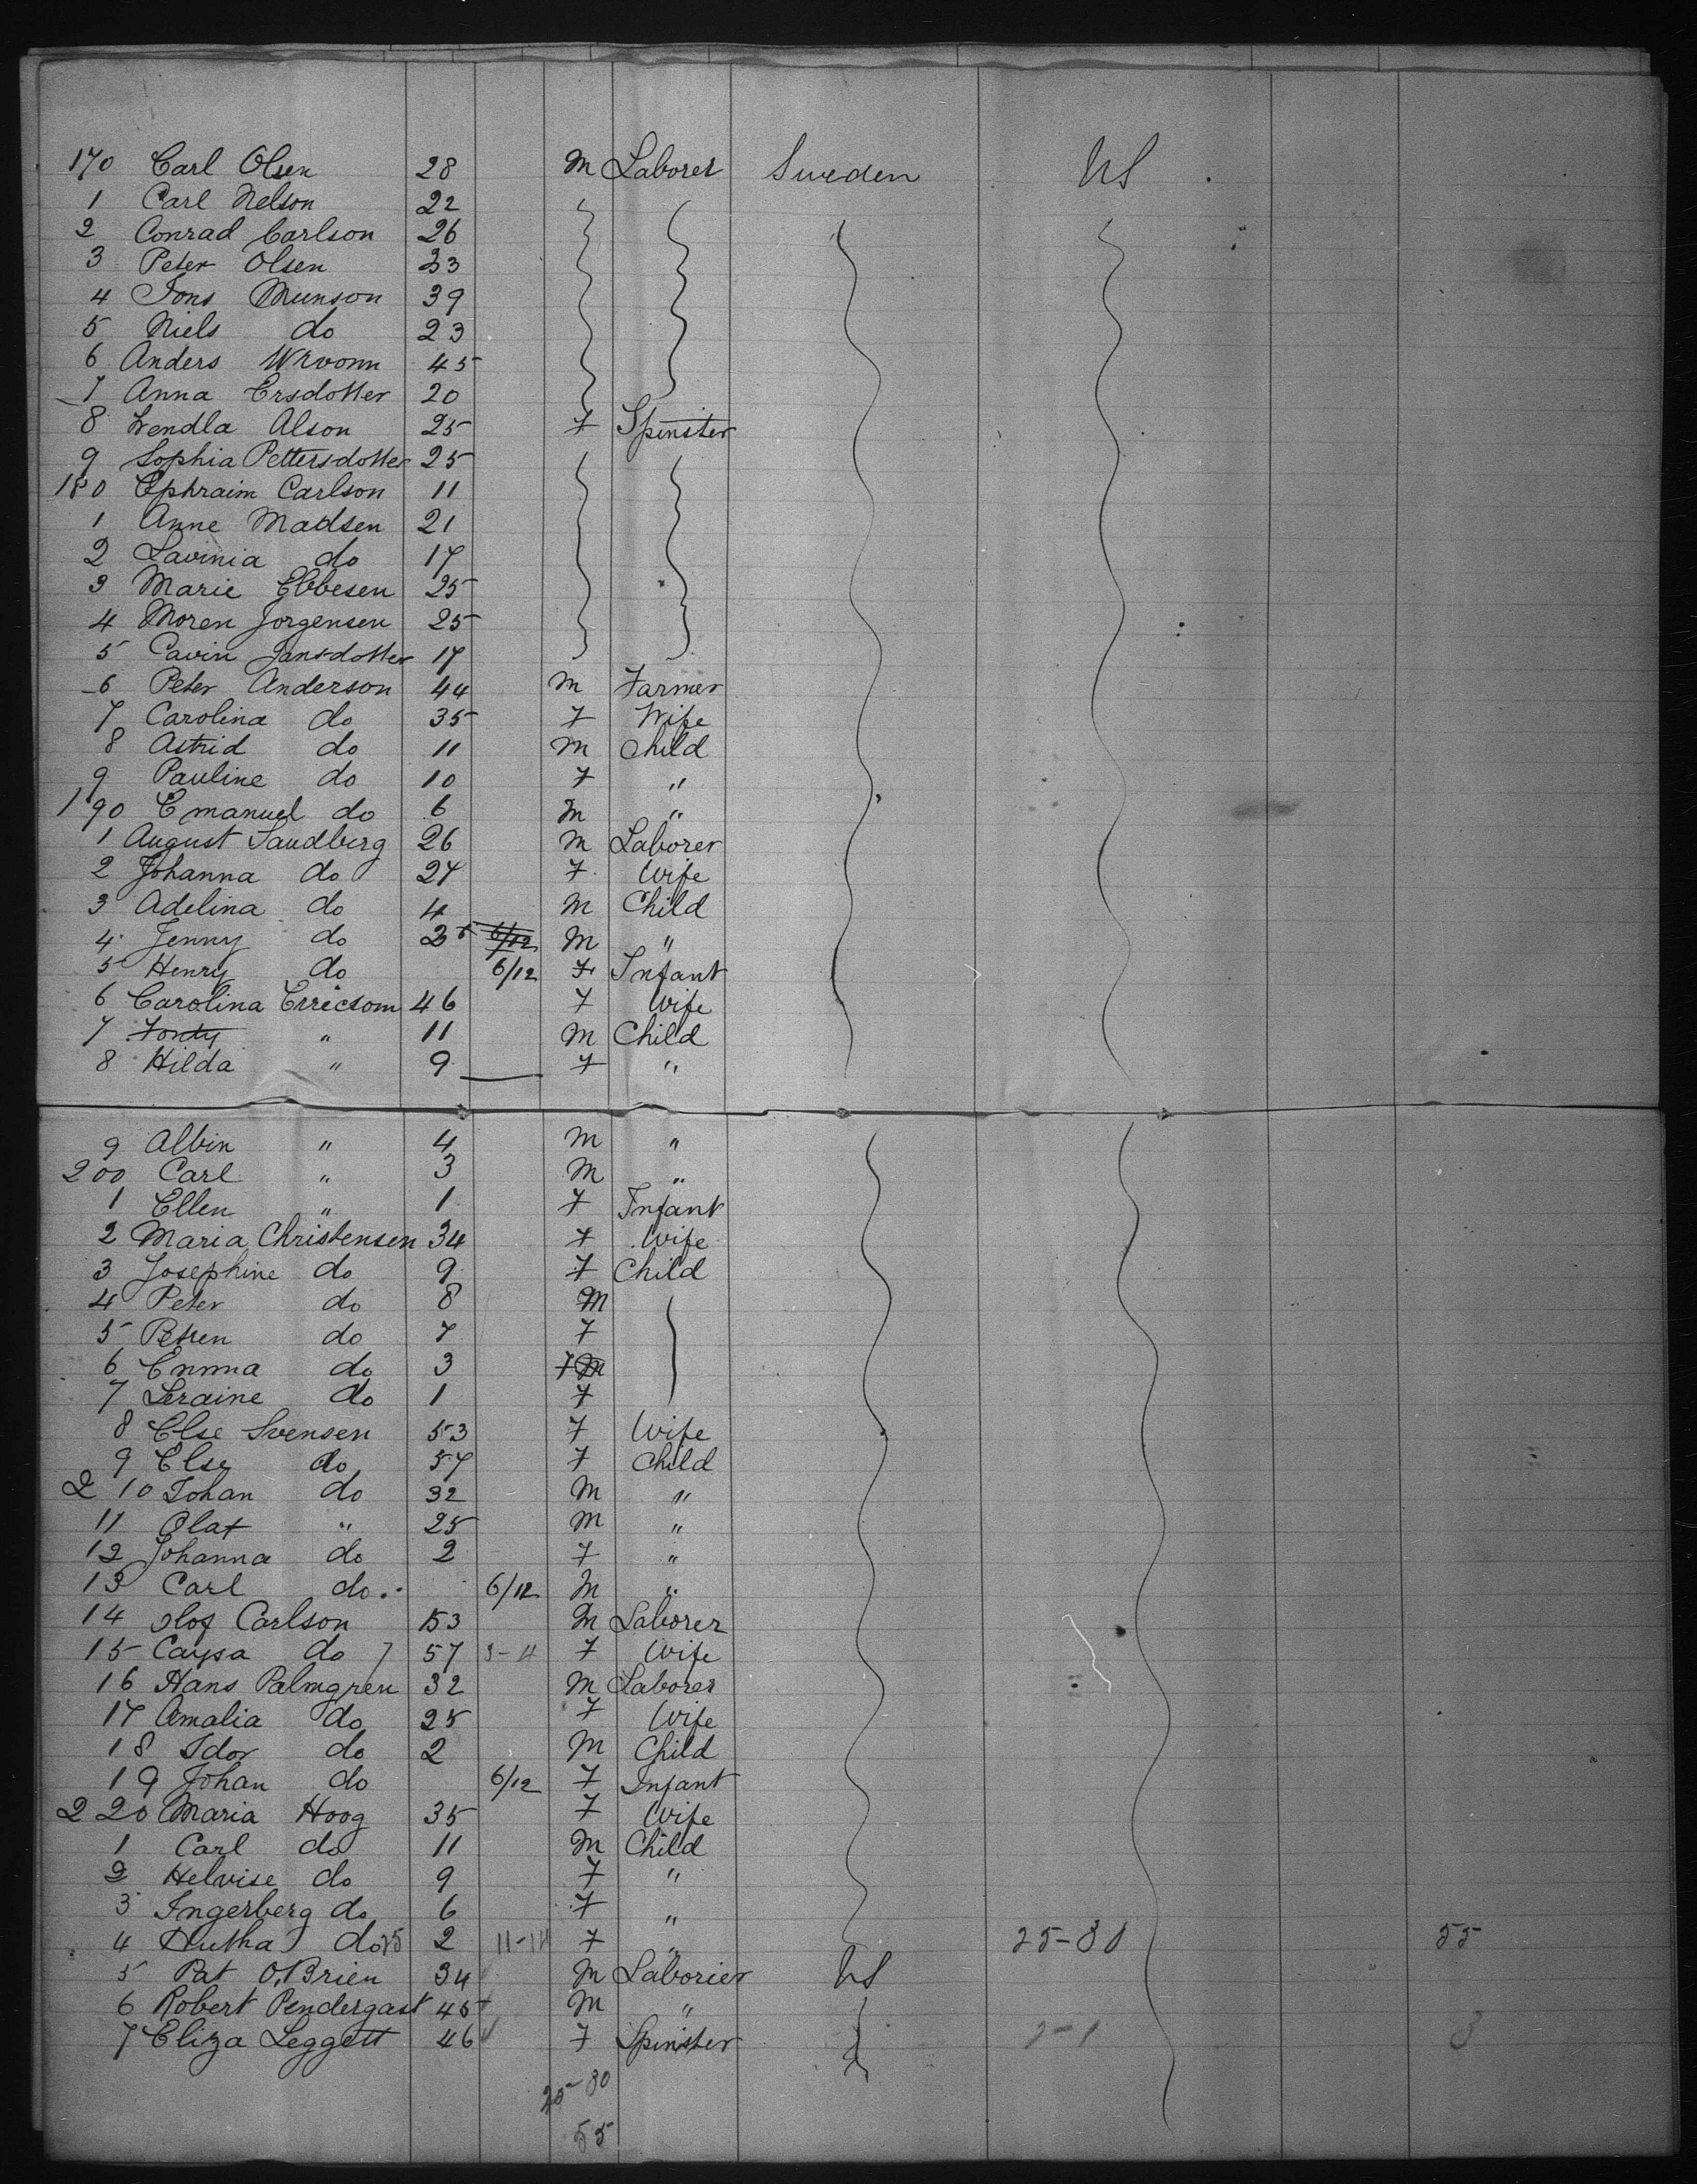 170 Carl Olsen 28 M Laborer Sweden US
1 Carl Nelson 22
2 Conrad Carlson 26
3 Peter Olsen 33
4 Jons Munson 39
5 Niels do 23
6 Anders 45
7 Anna Ersdotter 20
8 Wendla Alson 25 F Spinster
9 Sophia Pettersdotter 25
180 Ephraim Carlson 11
1 Anne Madsen 21
2 Lavinia do 17
3 Marie Ebbesen 25
4 Moren Jorgensen 25
5 Cavin Jansdotter 17
6 Peter Anderson 44 M Farmer
7 Carolina do 35 F Wife
8 Astrid do 11 M Child
9 Pauline do 10 F "
190 Emanuel do 6 M "
1 August Sandberg 26 M Laborer
2 Johanna do 27 F Wife
3 Adelina do 4 M Child
4 Jenny do 2 6/12 M "
5 Henry do 6/12 F Infant
6 Carolina Erricsom 46 F Wife
7 " 11 M Child
8 Hilda " 9 F "
9 Albin " 4 M "
200 Carl " 3 M "
1 Ellen " 1 F Infant
2 Maria Christensen 34 F Wife
3 Josephine do 9 F Child
4 Peter do 8 M
5 Petren do 7 F
6 Emma do 3 F M
7 Seraine do 1 F
8 Else Svensen 53 F Wife
9 Else do 57 F Child
210 Johan do 32 M "
11 Olaf " 25 M "
12 Johanna do 2 F "
13 Carl do 6/12 M "
14 Olof Carlson 53 M Laborer
15 Caysa do 7 57 3-4 F Wife
16 Hans Palmgren 32 M Laborer
17 Amalia do 25 F Wife
18 Idor do 2 M Child
19 Johan do 6/12 F Infant
220 Maria Hoog 35 F Wife
1 Carl do 11 M Child
2 Helvise do 9 F "
3 Ingerberg do 6 F "
4 Hutha do 2 F " 25-30 55
5 Pat O'Brien 34 M Laborier US
6 Robert Pendergast 45 M "
7 Eliza Leggett 46 F Spinster 2-1 3
25-30
55